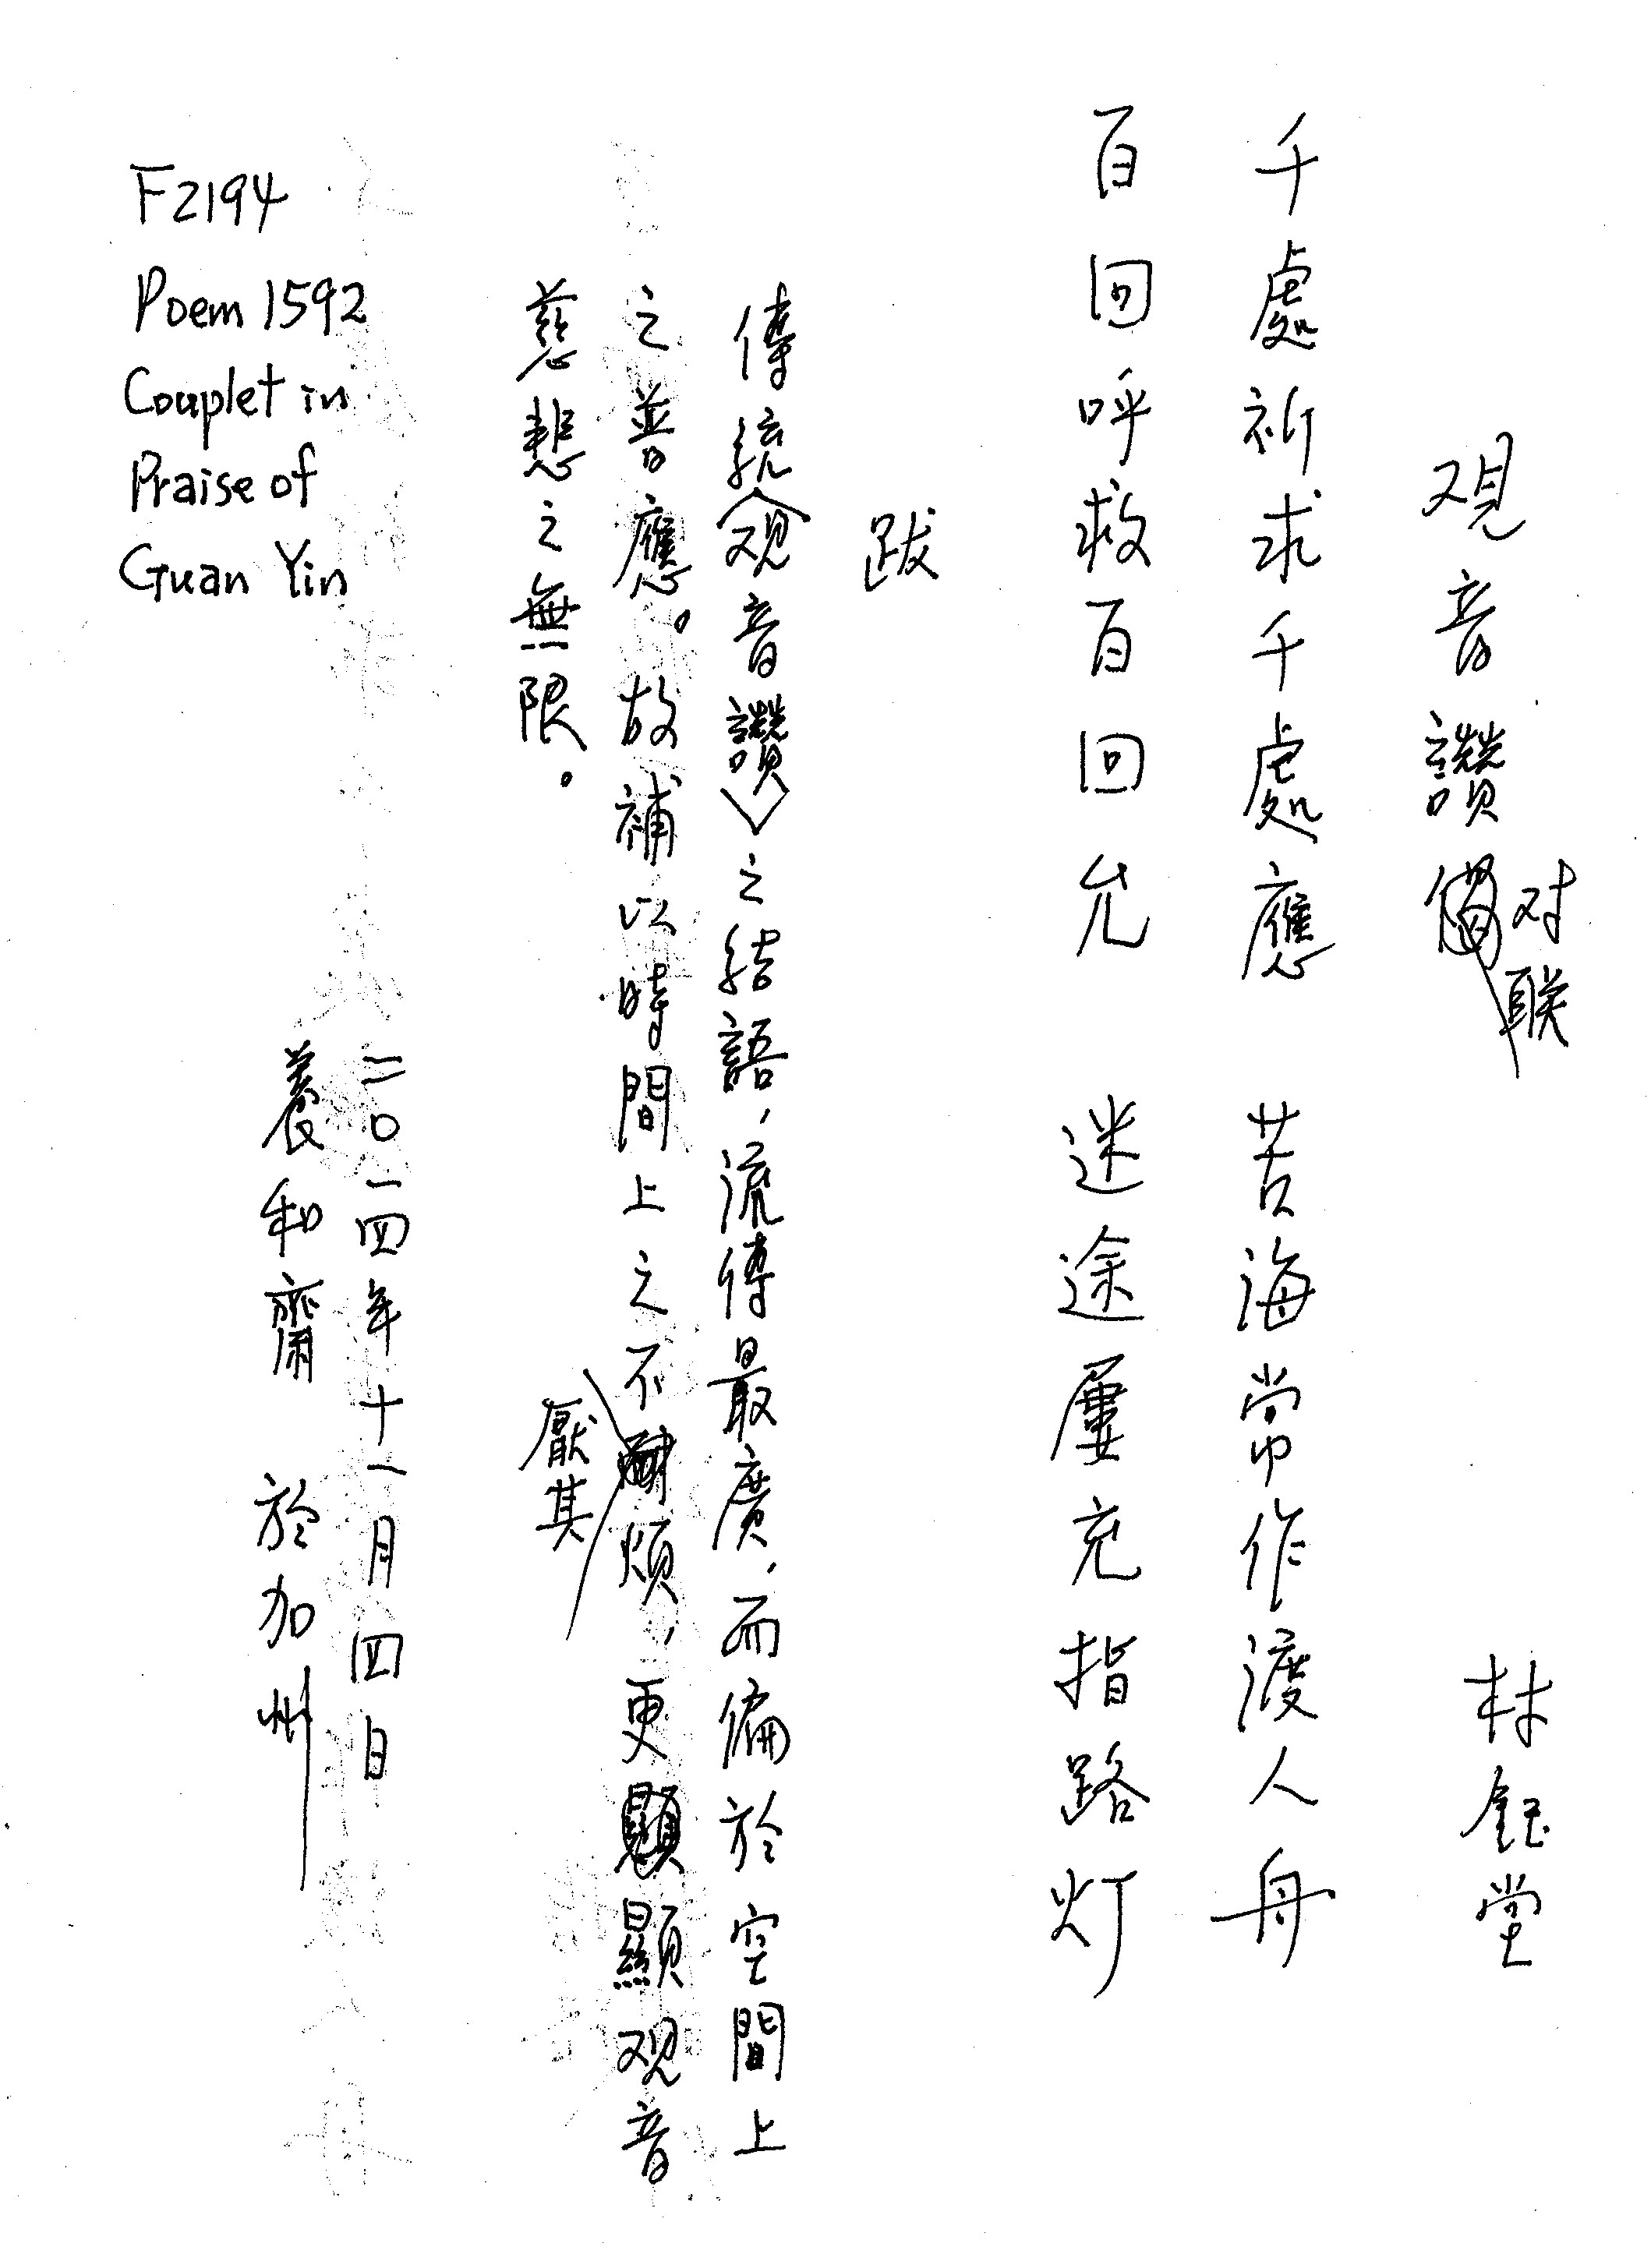 观音讚对联
林鈺堂
千處祈求千處應 苦海常作渡人舟
百回呼救百回允 迷途屢充指路灯
跋
傳統〈观音讚〉之結語，流傳最廣，而偏於空間上
之普應。故補以時間上之不厭其煩，更顯观音
慈悲之無限。
二〇一四年十一月四日
養和齋 於加州
F2194
Poem 1592
Couplet in
Praise of
Guan Yin